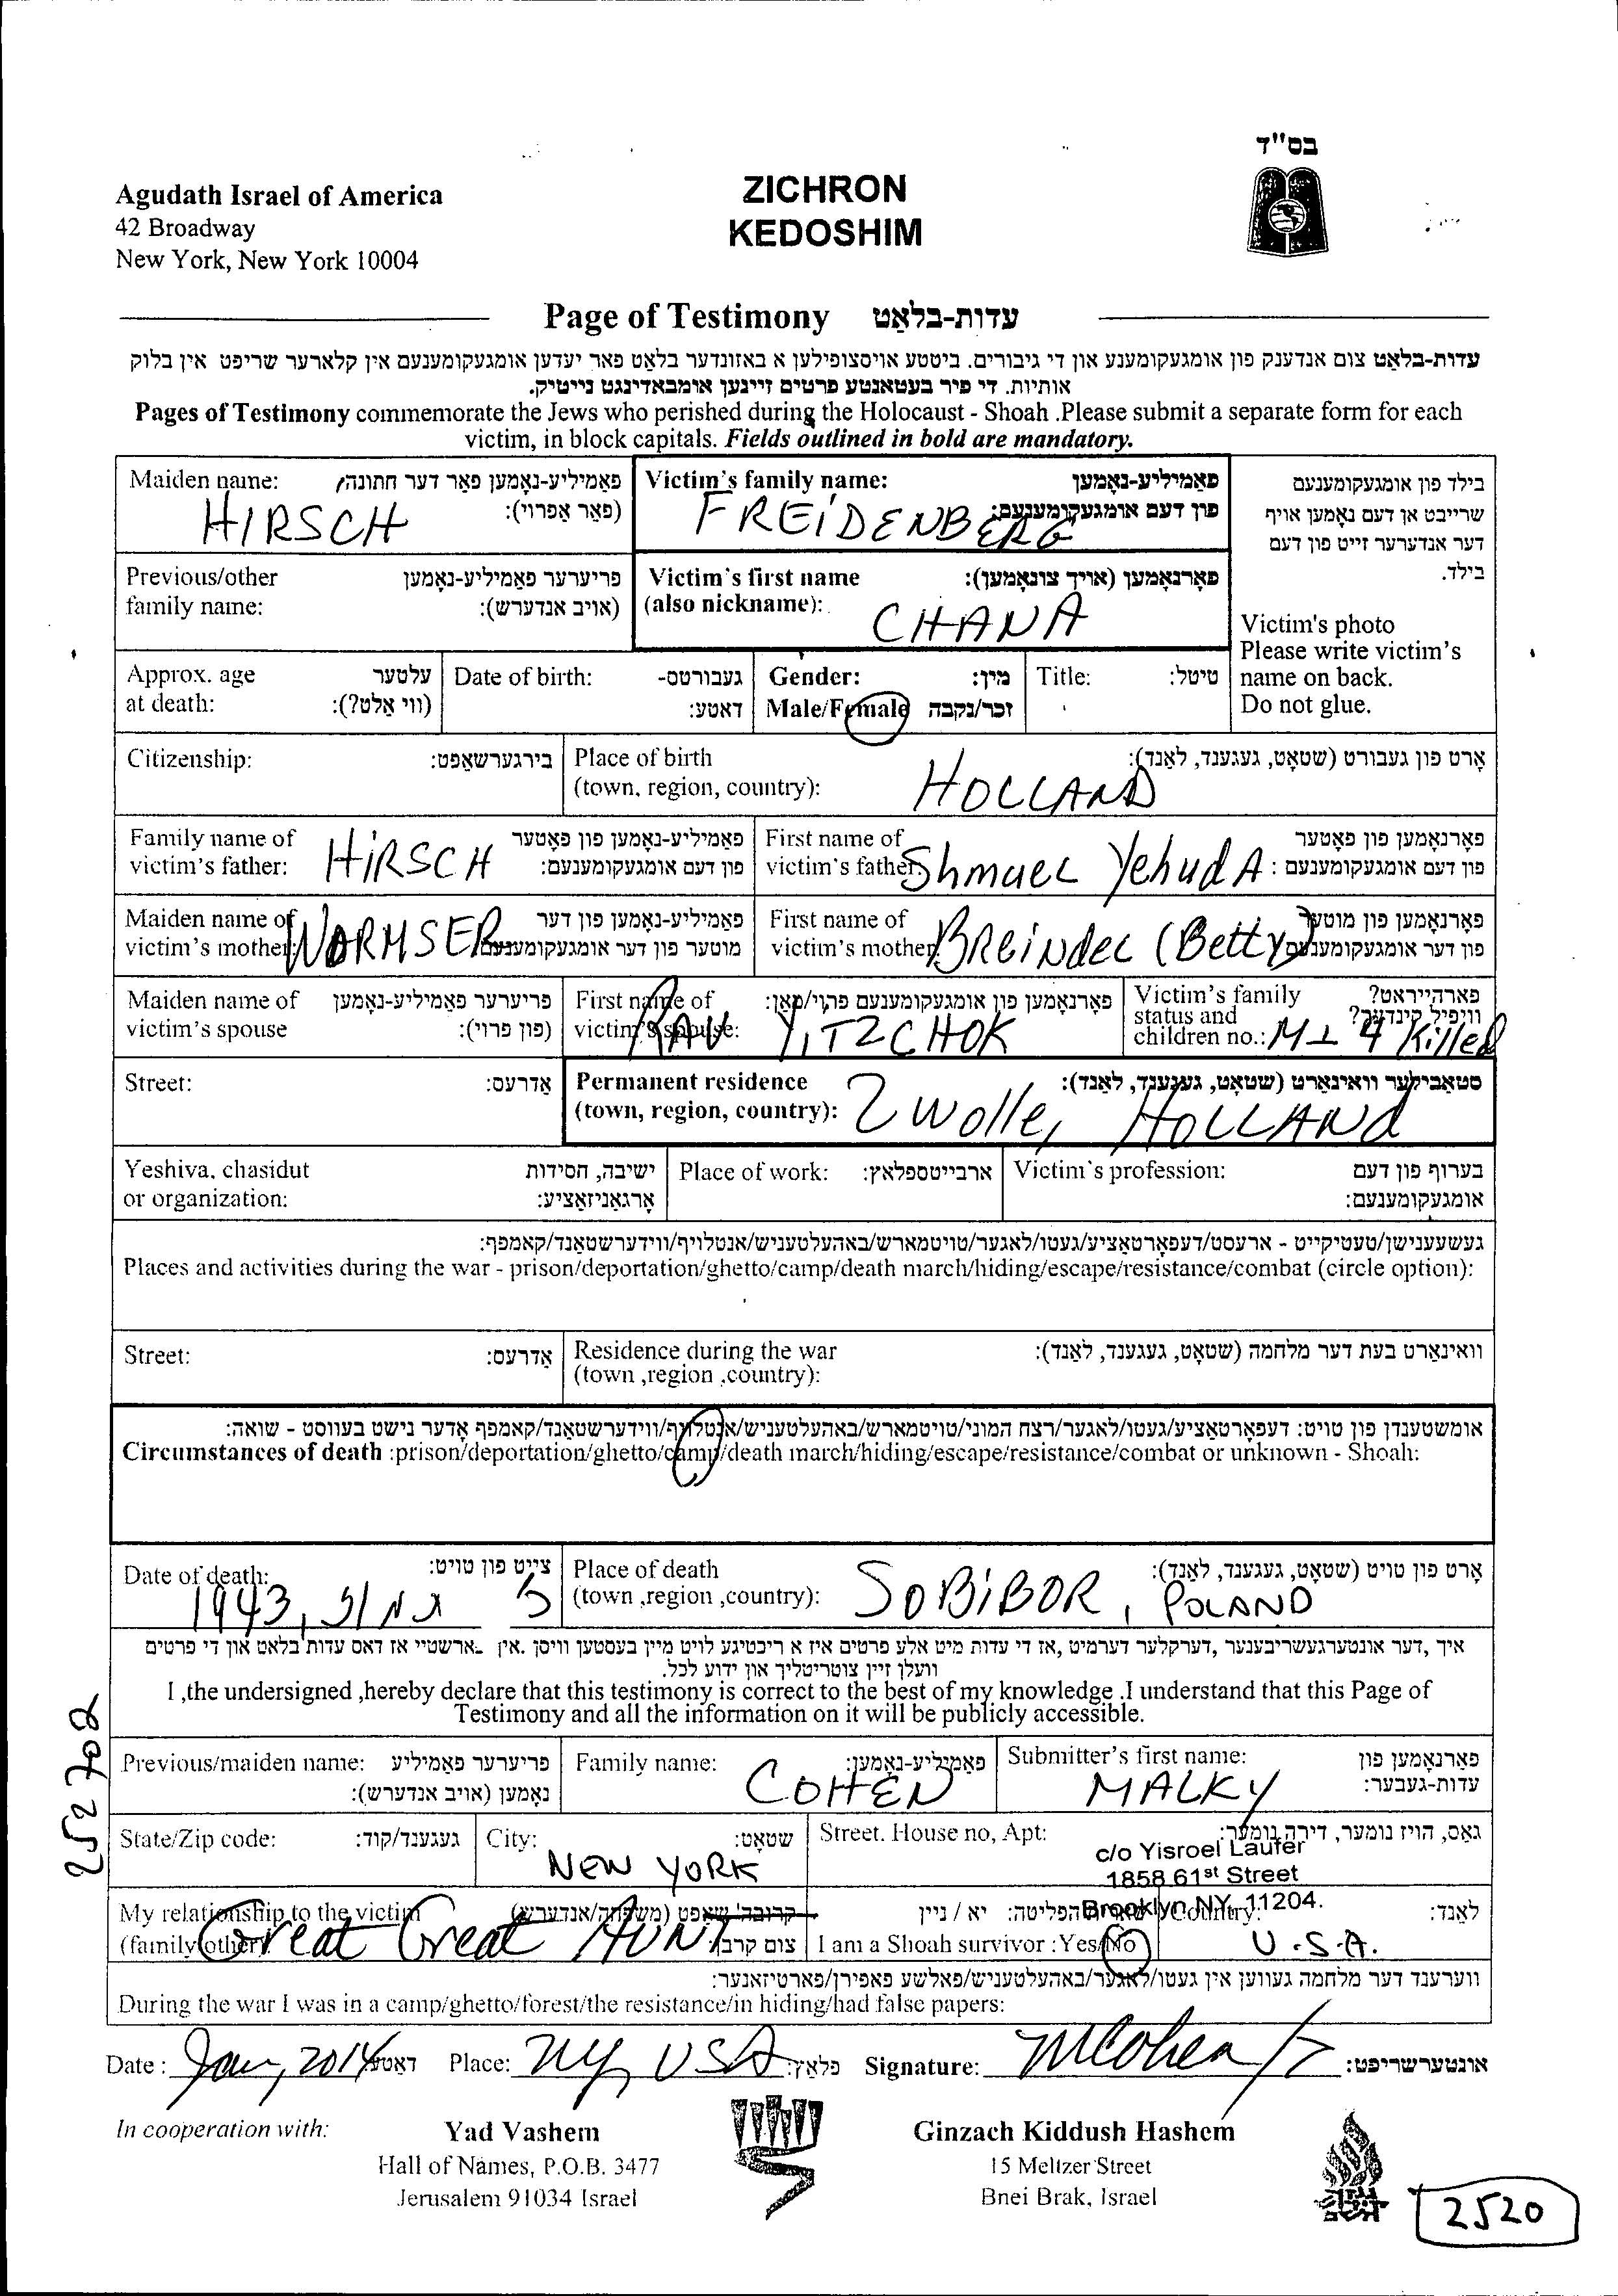 בס"ד
Agudath Israel of America
42 Broadway
New York, New York 10004
ZICHRON
KEDOSHIM
Page of Testimony עדות-בלאַט
עדות-בלאַט צום אנדענק פון אומגעקומענע און די גיבורים. ביטטע אויסצופילען א באזונדער בלאט פאר יעדען אומגעקומענעם אין קלארער שריפט אין בלוק
אותיות. די פיר בעטאנטע פרטים זיינען אומבאדינגט נייטיק.
Pages of Testimony commemorate the Jews who perished during the Holocaust - Shoah .Please submit a separate form for each
victim, in block capitals. Fields outlined in bold are mandatory.
Maiden name: פאַמיליע-נאָמען פאר דער חתונה,
(פאַר אַפרוי):
HIRSCH
Victim's family name: פאַמיליע-נאָמען
פון דעם אומגעקומענעם:
FREIDENBERG
בילד פון אומגעקומענעם
שרייבט אן דעם נאָמען אויף
דער אנדערער זייט פון דעם
בילד.
Victim's photo
Please write victim's
name on back.
Do not glue.
Previous/other פריערער פאַמיליע-נאָמען
family name: (אויב אנדערש):
Victim's first name פאָרנאָמען (אויך צונאָמען):
(also nickname):
CHANA
Approx. age עלטער
at death: (ווי אַלט?):
Date of birth: געבורטס-
דאטע:
Gender: מין:
Male/Female זכר/נקבה
Title: טיטל:
Citizenship: בירגערשאַפט:
Place of birth אָרט פון געבורט (שטאָט, געגענד, לאַנד):
(town, region, country):
HOLLAND
Family name of פאַמיליע-נאָמען פון פאָטער
victim's father: פון דעם אומגעקומענעם:
HIRSCH
First name of פאָרנאָמען פון פאָטער
victim's father: פון דעם אומגעקומענעם :
Shmuel Yehuda
Maiden name of פאַמיליע-נאָמען פון דער
victim's mother: מוטער פון דער אומגעקומענעם
WORMSER
First name of פאָרנאָמען פון מוטער
victim's mother פון דער אומגעקומענעם
BReindel (Betty)
Maiden name of פריערער פאַמיליע-נאָמען
victim's spouse (פון פרוי):
First name of פאָרנאָמען פון אומגעקומענעם פרוי/מאַן:
victim's spouse:
RAV YITZCHOK
Victim's family פארהייראט?
status and וויפיל קינדער?
children no.: M 4 Killed
Street: אַדרעס:
Permanent residence סטאַבילער וואוינאָרט (שטאָט, געגענד, לאַנד):
(town, region, country):
Zwolle, HOLLAND
Yeshiva, chasidut ישיבה, חסידות
or organization: אָרגאַניזאַציע:
Place of work: ארבייטספלאץ:
Victim's profession: בערוף פון דעם
אומגעקומענעם:
געשעענישן/טעטיקייט - ארעסט/דעפּאָרטאַציע/געטו/לאגער/טויטמארש/באהעלטעניש/אנטלויף/ווידערשטאַנד/קאמפף:
Places and activities during the war - prison/deportation/ghetto/camp/death march/hiding/escape/resistance/combat (circle option):
Street: אַדרעס:
Residence during the war וואוינאָרט בעת דער מלחמה (שטאָט, געגענד, לאַנד):
(town ,region ,country):
אומשטענדן פון טויט: דעפאָרטאַציע/געטו/לאגער/רצח המוני/טויטמארש/באהעלטעניש/אַנטלויף/ווידערשטאַנד/קאמפף אָדער נישט בעוווסט - שואה:
Circumstances of death :prison/deportation/ghetto/camp/death march/hiding/escape/resistance/combat or unknown - Shoah:
Date of death: צייט פון טויט:
1943,
Place of death אָרט פון טויט (שטאָט, געגענד, לאַנד):
(town ,region ,country):
SOBIBOR, POLAND
איך ,דער אונטערגעשריבענער ,דערקלער דערמיט ,אז די עדות מיט אלע פרטים איז א ריכטיגע לויט מיין בעסטען וויסן .אין ארשטיי אז דאס עדות בלאט און די פרטים
וועלן זיין צוטריטליך און ידוע לכל.
I ,the undersigned ,hereby declare that this testimony is correct to the best of my knowledge .I understand that this Page of
Testimony and all the information on it will be publicly accessible.
252708
Previous/maiden name: פריערער פאַמיליע
נאָמען (אויב אנדערש):
Family name: פאַמיליע-נאָמען:
COHEN
Submitter's first name: פאָרנאָמען פון
עדות-געבער:
MALKY
State/Zip code: געגענד/קוד:
City: שטאָט:
NEW YORK
Street. House no, Apt: גאַס, הויז נומער, דירה נומער:
c/o Yisroel Laufer
1858 61st Street
Brooklyn NY 11204.
My relationship to the victim
(family/other)
Great Great AUNT
יא / ניין
I am a Shoah survivor :Yes/No
Country: לאַנד:
U.S.A.
ווערענד דער מלחמה געווען אין געטו/לאַגער/באהעלטעניש/פאלשע פאפירן/פארטיזאנער:
During the war I was in a camp/ghetto/forest/the resistance/in hiding/had false papers:
Date : Jan, 2014 דאטע Place: NY, USA פלאַץ: Signature: MCohen אונטערשריפט:
In cooperation with:
Yad Vashem
Hall of Names, P.O.B. 3477
Jerusalem 91034 Israel
Ginzach Kiddush Hashem
15 Meltzer Street
Bnei Brak, Israel
2520